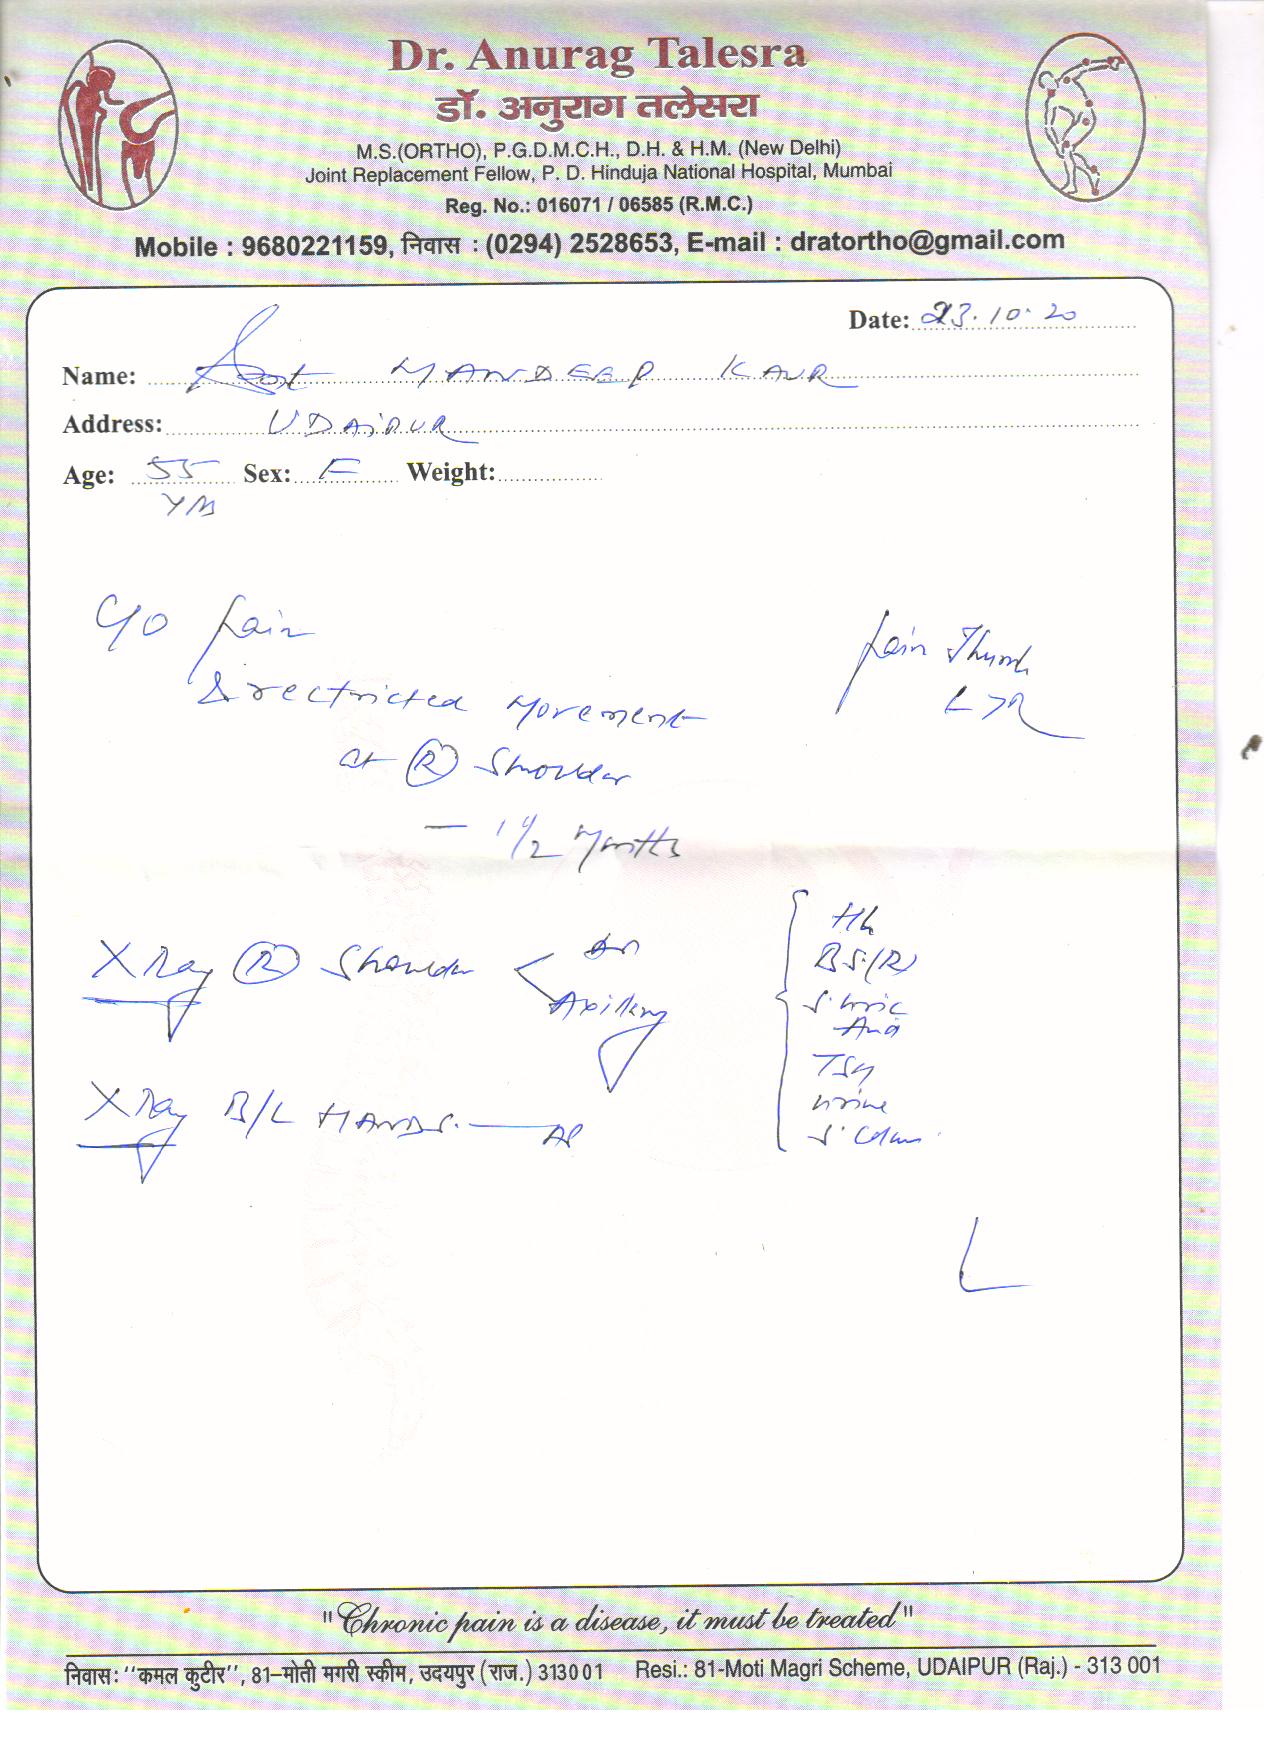 Dr. Anurag Talesra
डॉ. अनुराग तलेसरा
M.S.(ORTHO), P.G.D.M.C.H., D.H. & H.M. (New Delhi)
Joint Replacement Fellow, P. D. Hinduja National Hospital, Mumbai
Reg. No.: 016071 / 06585 (R.M.C.)
Mobile : 9680221159, निवास : (0294) 2528653, E-mail : dratortho@gmail.com
Date: 23.10.20
Name: MANDEEP KAUR
Address: UDAIPUR
Age: 55 Sex: F Weight:
C/O Pain
& restricted Movement
at (R) Shoulder
- 1 1/2 Months
Pain Thumb
L > R
X Ray (R) Shoulder
Axillary
X Ray B/L HANDS. AP
Hb
BS(R)
S. Uric
Acid
TSH
Urine
"Chronic pain is a disease, it must be treated"
निवास: "कमल कुटीर", 81-मोती मगरी स्कीम, उदयपुर (राज.) 313001 Resi.: 81-Moti Magri Scheme, UDAIPUR (Raj.) - 313 001